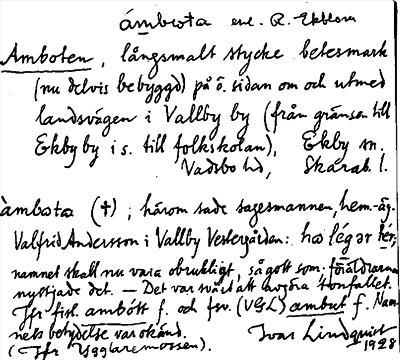 ámbota enl. R. Ekblom
Amboten, långsmalt stycke betesmark
(nu delvis bebyggd) på ö. sidan om och utmed
landsvägen i Vallby by (från gränsen till
Ekby by i s. till folkskolan), Ekby sn.
Vadsbo hd, Skarab. l.
àmbota (†); härom sade sagesmannen, hem.-äg.
Valfrid Andersson i Vallby Vestergården: hɷ légər hér;
namnet skall nu vara obrukligt, så gott som föräldrarna
nyttjade det. — Det var svårt att avgöra tonfallet.
Jfr fisl. ambótt f. och fsv. (VGL) ambut f. Nam-
nets betydelse var okänd. Ivar Lindquist
(Jfr Ygglaremossen). 1928